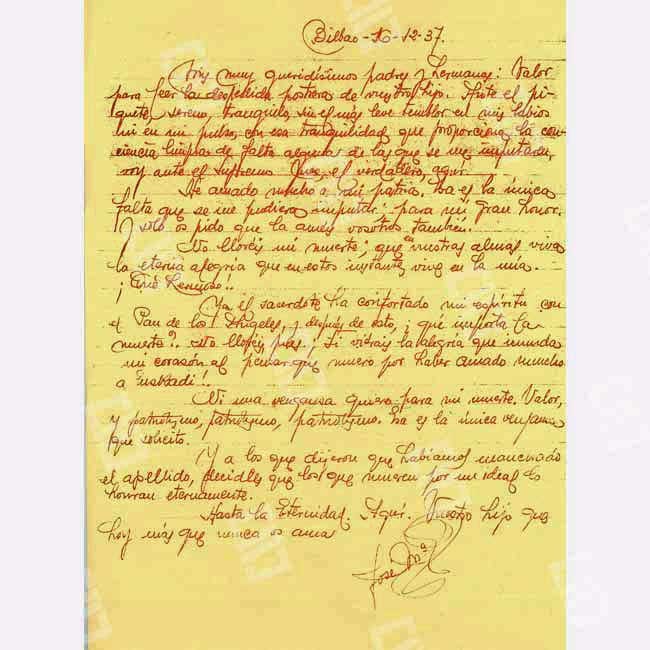 Bilbao - 16-12-37.
Mis muy queridísimos padres y hermanas: Valor
para leer la despedida postrera de vuestro hijo. Ante el pi-
quete, sereno, tranquilo, sin el más leve temblor en mis labios
ni en mi pulso, con esa tranquilidad que proporciona la con-
ciencia limpia de falta alguna de las que se me imputaran,
voy ante el Supremo. Juez, el verdadero, agur.
He amado mucho a mi patria. Esa es la única
falta que se me pudiera imputar: para mí, gran honor.
Y solo os pido que la améis vosotros también.
No lloréis mi muerte; que en vuestras almas viva
la eterna alegría que en estos instantes vive en la mía.
¡Qué hermoso!..
Ya el sacerdote ha confortado mi espíritu con
el Pan de los Angeles, y después de esto, ¿qué importa la
muerte?. No lloréis, pues. ¡Si vierais la alegría que inunda
mi corazón al pensar que muero por haber amado mucho
a Euskadi!.
Ni una venganza quiero para mi muerte. Valor,
y patriotismo, patriotismo, patriotismo. Esa es la única venganza
que solicito.
Y a los que dijeron que habíamos manchado
el apellido, decidles que los que mueren por un ideal lo
honran eternamente.
Hasta la Eternidad. Agur. Vuestro hijo que
hoy más que nunca os ama
José Mª